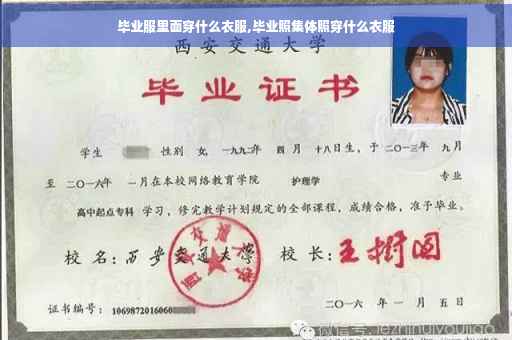 毕业服里面穿什么衣服,毕业照集体照穿什么衣服
西安交通大学
毕业证书
学生 性别 女, 一九九二年 四月 十八日生, 于二〇一三年 九月
至 二〇一六年 一月在本校网络教育学院 护理学 专业
高中起点专科 学习, 修完教学计划规定的全部课程, 成绩合格, 准予毕业。
校 名: 西安交通大学 校 长: 王树国
证书编号: 1069872016060
二〇一六 年 一 月 五 日
微信号: jiezhihuiyoujiao